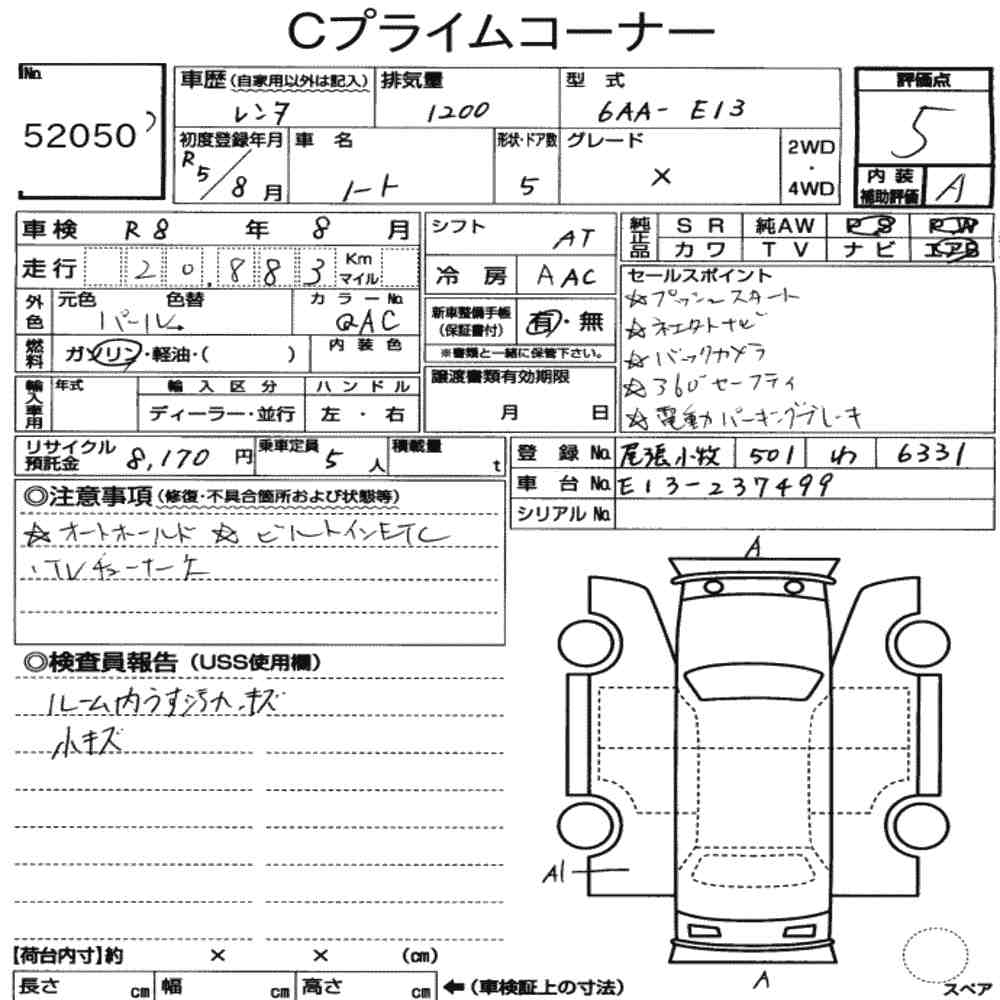 Cプライムコーナー
No.
52050
車歴(自家用以外は記入) 排気量 型式 評価点
レンタ 1200 6AA-E13 5
初度登録年月 車名 形状・ドア数 グレード 2WD・4WD 内装補助評価
R5/8月 ノート 5 × A
車検 R8年 8月 シフト AT 純正品 SR 純AW PS PW
走行 20,883 Km マイル 冷房 AAC カワ TV ナビ エアB
外色 元色 色替 カラーNo. 新車整備手帳(保証書付) 有・無 セールスポイント
パール QAC ☆プッシュスタート
燃料 ガソリン・軽油・( ) 内装色 ※書類と一緒に保管下さい。 ☆ネエクトナビ
☆バックカメラ
輸入車用 年式 輸入区分 ハンドル 譲渡書類有効期限 ☆360°セーフティ
ディーラー・並行 左・右 月 日 ☆電動パーキングブレーキ
リサイクル預託金 8,170円 乗車定員 5人 積載量 t 登録No. 尾張小牧 501 わ 6331
車台No. E13-237499
シリアルNo.
◎注意事項(修復・不具合箇所および状態等)
☆オートホールド ☆ビルトインETC
・TVチューナー欠
◎検査員報告(USS使用欄)
ルーム内うす汚れ、キズ
小キズ
A
A1
A
【荷台内寸】約 × × (cm)
長さ cm 幅 cm 高さ cm ←(車検証上の寸法) スペア